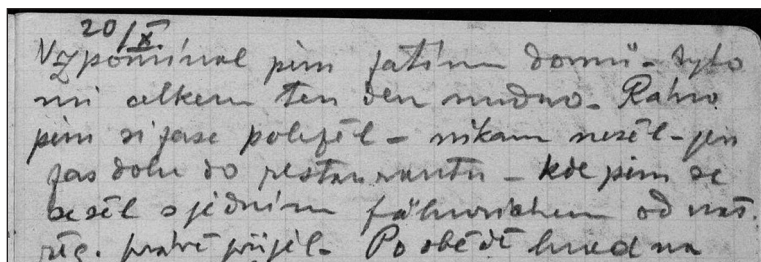 20/X.
Vzpomínal jsem zatím domů - bylo
mi celkem ten den nudno. Ráno
jsem si zase poležel - nikam nešel - jen
zas dolu do restaurantu - kde jsem se
sešel s jedním fähnrichem od naš.
reg. právě přijel. Po obědě hned na